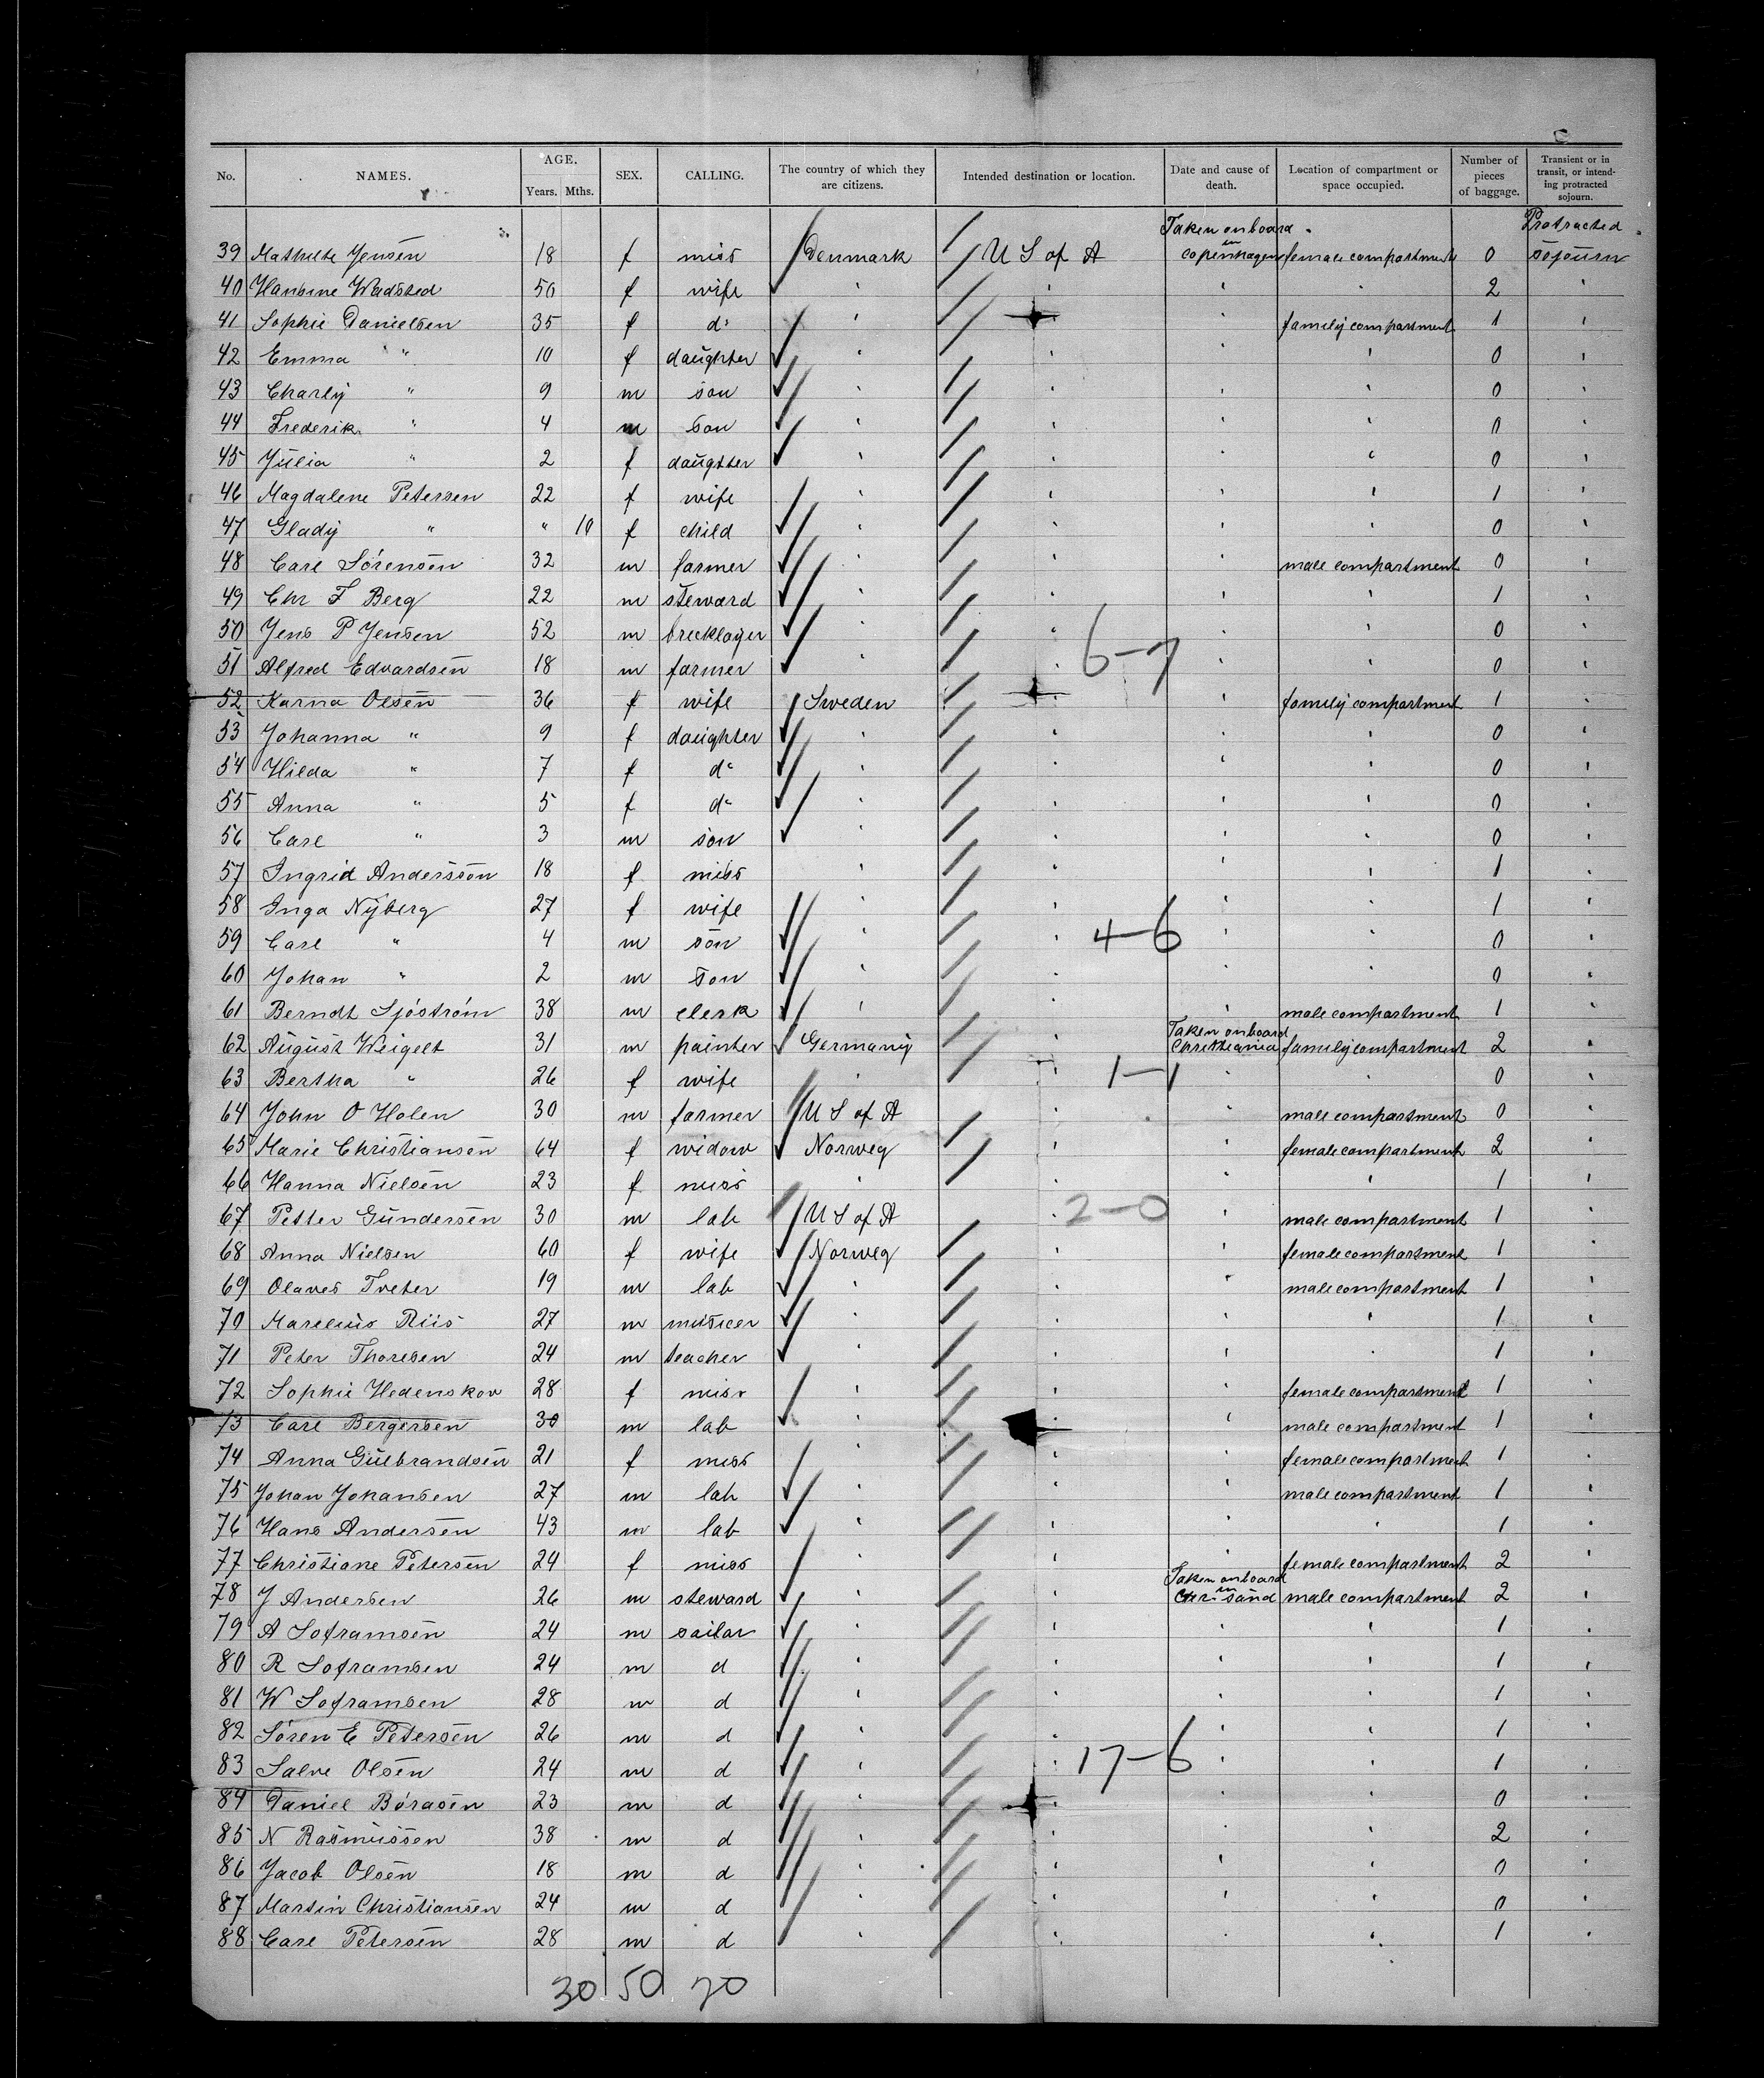 No. NAMES. AGE. Years. Mths. SEX. CALLING. The country of which they are citizens. Intended destination or location. Date and cause of death. Location of compartment or space occupied. Number of pieces of baggage. Transient or in transit, or intending protracted sojourn.
Taken onboard Protracted
39 Jensen 18 f miss Denmark U S of A in copenhagen female compartment 0 sojourn
40 Hansine Wadsted 50 f wife ' ' ' ' 2 '
41 Sophie Danielsen 35 f do ' ' ' family compartment 1 '
42 Emma " 10 f daughter ' ' ' ' 0 '
43 Charly " 9 m son ' ' ' ' 0 '
44 Frederik " 4 m son ' ' ' ' 0 '
45 Julia " 2 f daugther ' ' ' ' 0 '
46 Magdalene Petersen 22 f wife ' ' ' ' 1 '
47 Glady " " 10 f child ' ' ' ' 0 '
48 Carl Sørensen 32 m farmer ' ' ' male compartment 0 '
49 Chr F Berg 22 m steward ' ' ' ' 1 '
50 Jens P Jensen 52 m bricklayer ' ' ' ' 0 '
6-7
51 Alfred Edvardsen 18 m farmer ' ' ' ' 0 '
52 Karna Olsen 36 f wife Sweden ' ' family compartment 1 '
53 Johanna " 9 f daughter ' ' ' ' 0 '
54 Hilda " 7 f do ' ' ' ' 0 '
55 Anna " 5 f do ' ' ' ' 0 '
56 Carl " 3 m son ' ' ' ' 0 '
57 Ingrid Andersson 18 f miss ' ' ' ' 1 '
58 Inga Nyberg 27 f wife ' ' ' ' 1 '
59 Carl " 4 m son ' ' 4-6 ' ' 0 '
60 Johan " 2 m son ' ' ' ' 0 '
61 Berndt Sjöström 38 m clerk ' ' ' male compartment 1 '
Taken onboard
62 August Weigelt 31 m painter Germany ' Christiania family compartment 2 '
63 Bertha " 26 f wife ' ' 1-1 ' ' 0 '
64 John O Holen 30 m farmer U S of A ' ' male compartment 0 '
65 Marie Christiansen 64 f widow Norweg ' ' female compartment 2 '
66 Hanna Nielsen 23 f miss ' ' ' ' 1 '
67 Petter Gundersen 30 m lab U S of A ' 2-0 ' male compartment 1 '
68 Anna Nielsen 60 f wife Norweg ' ' female compartment 1 '
69 Olaves Tveter 19 m lab ' ' ' male compartment 1 '
70 Marelius Riis 27 m ' ' ' ' 1 '
71 Peter Thoresen 24 m teacher ' ' ' ' 1 '
72 Sophie Hedenskov 28 f miss ' ' ' female compartment 1 '
73 Carl Bergersen 30 m lab ' ' ' male compartment 1 '
74 Anna Gulbrandsen 21 f miss ' ' ' female compartment 1 '
75 Johan Johansen 27 m lab ' ' ' male compartment 1 '
76 Hans Andersen 43 m lab ' ' ' ' 1 '
77 Christiane Petersen 24 f miss ' ' ' female compartment 2 '
Taken onboard
78 J Andersen 26 m steward ' ' in Chrisand male compartment 2 '
79 A Soframsen 24 m sailor ' ' ' ' 1 '
80 R Soframsen 24 m d ' ' ' ' 1 '
81 W Soframsen 28 m d ' ' ' ' 1 '
82 Søren E Petersen 26 m d ' ' ' ' 1 '
83 Salve Olsen 24 m d ' ' 17-6 ' ' 1 '
84 Daniel 23 m d ' ' ' ' 0 '
85 N Rasmussen 38 m d ' ' ' ' 2 '
86 Jacob Olsen 18 m d ' ' ' ' 0 '
87 Martin Christiansen 24 m d ' ' ' ' 0 '
88 Carl Petersen 28 m d ' ' ' ' 1 '
30 50 20